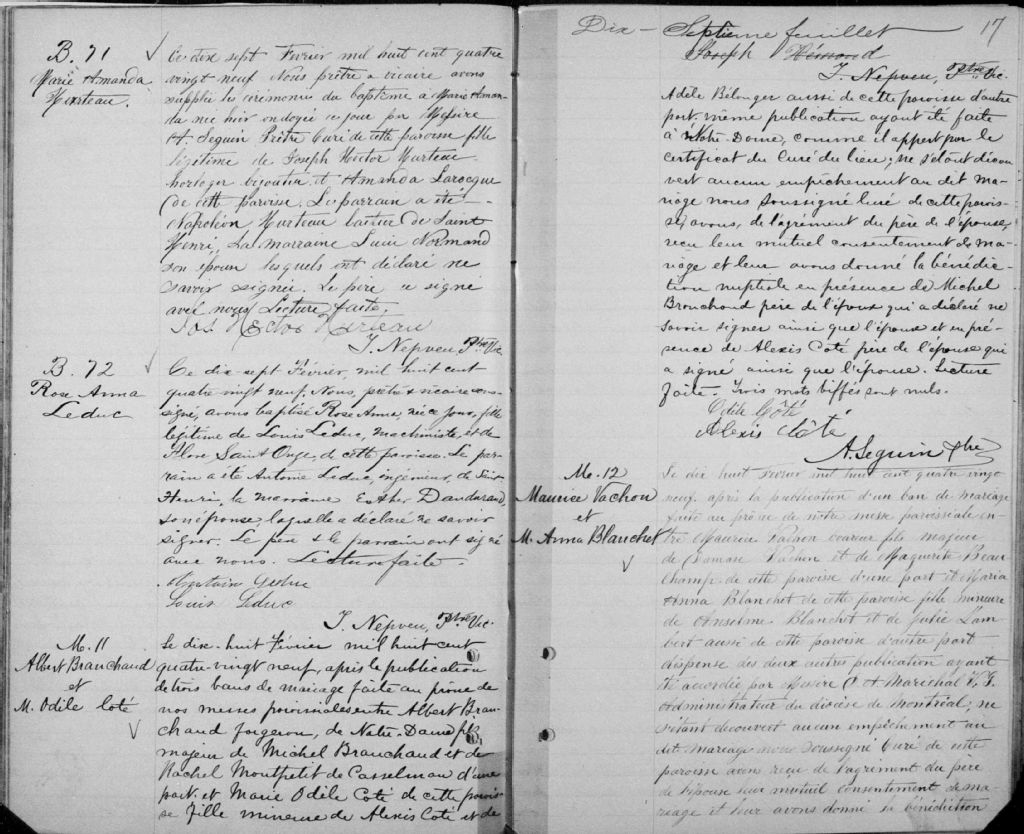 B. 71
Marie Amanda
Hurteau.
Ce dix sept Fevrier mil huit cent quatre
vingt neuf Nous prêtre & vicaire avons
supplée les cérémonies du baptême à Marie Aman-
da née hier ondoyée ce jour par Messire
A. Seguin Prêtre Curé de cette paroisse fille
légitime de Joseph Hector Hurteau
horloger bijoutier et Amanda Larocque
de cette paroisse. Le parrain a été
Napoléon Hurteau laitier de Saint
Henri, La marraine Normand
son épouse lesquels ont déclaré ne
savoir signer. Le père a signé
avec nous. Lecture faite.
Jos Hector Hurteau
J. Nepveu, Ptre Vic.
B. 72
Rose Anna
Leduc
Ce dix-sept Février, mil huit cent
quatre vingt neuf, Nous, prêtre & vicaire sous-
signé, avons baptisé Rose Anna, née ce jour, fille
légitime de Louis Leduc, machiniste, et de
Flore Saint Onge, de cette paroisse. Le par-
rain a été Antoine Leduc, ingénieur, de Saint
Henri, la marraine Esther Dandurand,
son épouse, laquelle a déclaré ne savoir
signer. Le père & le parrain ont signé
avec nous. Lecture faite.
Leduc
Louis Leduc
J. Nepveu, Ptre Vic.
M. 11
Albert Branchaud
et
M. Odile Coté
Le dix-huit Février mil huit cent
quatre-vingt neuf, après la publication
de trois bans de mariage faite au prône de
nos messes paroissiales entre Albert Bran-
chaud forgeron, de Notre-Dame fils
majeur de Michel Branchaud et de
Rachel Montpetit de Casselman d'une
part. et Marie Odile Coté de cette parois-
se fille mineure de Alexis Coté et de
Dix-Septième feuillet
17
Joseph Hémond
J. Nepveu, Ptre Vic.
Adèle Bélanger aussi de cette paroisse d'autre
part. même publication ayant été faite
à Notre-Dame, comme il appert par le
certificat du Curé du lieu; ne s'étant décou-
vert aucun empêchement au dit ma-
riage nous soussigné Curé de cette parois-
se, avons, de l'agrément du père de l'épouse,
reçu leur mutuel consentement de ma-
riage et leur avons donné la bénédic-
tion nuptiale en présence de Michel
Branchaud père de l'époux qui a déclaré ne
savoir signer ainsi que l'époux et en pré-
sence de Alexis Coté père de l'épouse qui
a signé ainsi que l'épouse. Lecture
faite. Trois mots biffés sont nuls.
Odile Côté
Alexis Côté
A. Seguin Ptre
M. 12
Maurice Vachon
et
M. Anna Blanchet
Le dix huit Fevrier mil huit cent quatre vingt
neuf. après la publication d'un ban de mariage
faite au prône de notre messe paroissiale en-
tre Maurice Vachon fils majeur
de Damase Vachon et de Marguerite Beau
champ. de cette paroisse d'une part et Maria
Anna Blanchet de cette paroisse fille mineure
de Anselme Blanchet et de Julie Lam
bert aussi de cette paroisse d'autre part
dispense des deux autres publication ayant
été accordée par Messire Maréchal V. G.
administrateur du diocèse de Montréal; ne
s'étant decouvert aucun empêchement au
dit mariage nous soussigné Curé de cette
paroisse avons reçu de l'agrément du père
de l'épouse leur mutuel consentement de ma-
riage et leur avons donné la bénédiction